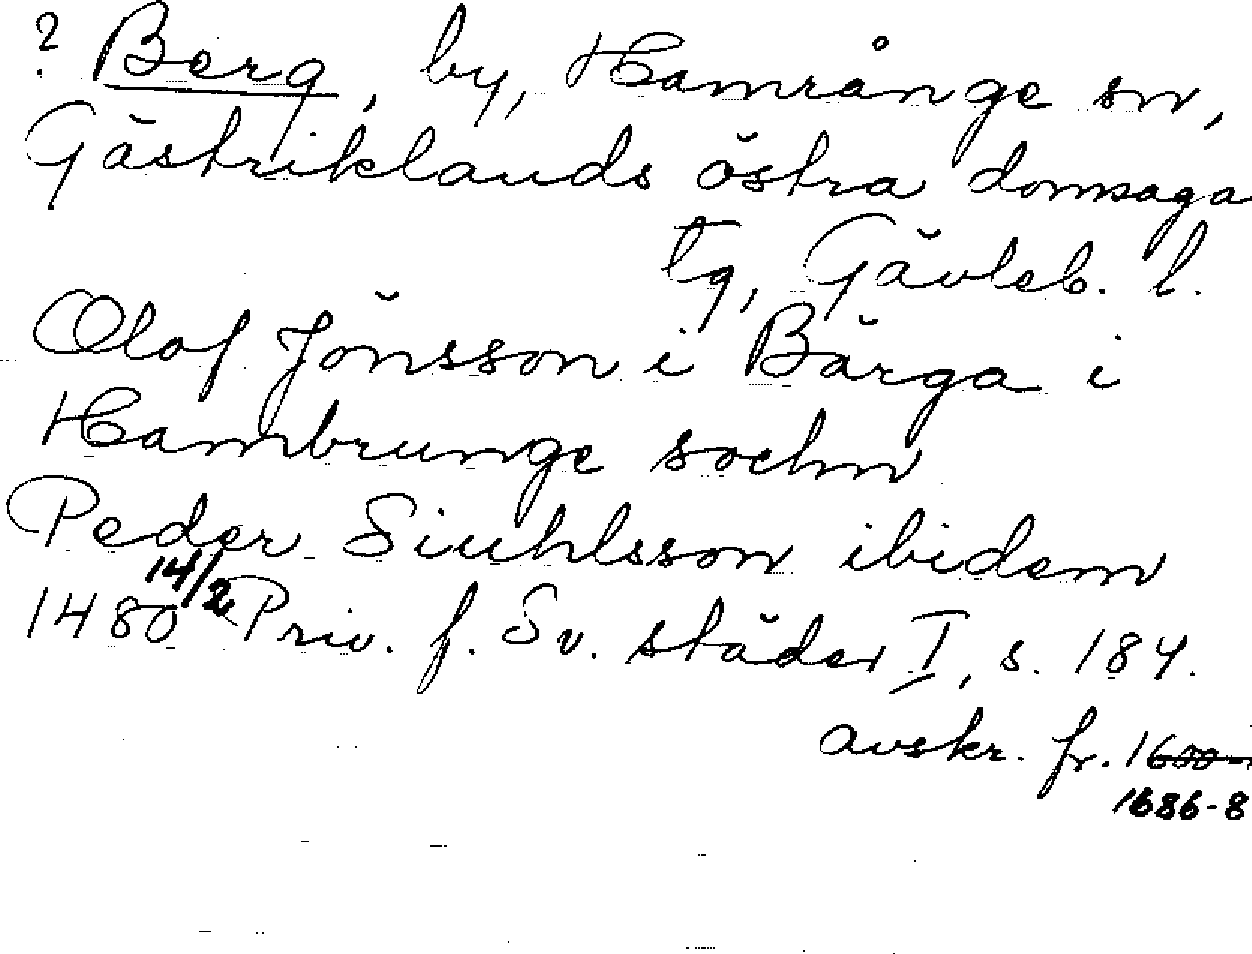 ? Berg, by, Hamrånge sn,
Gästriklands östra domsaga
tg, Gävleb. l.
Olof Jönsson i Bärga i
Hambrunge sochn
Peder Siuhlsson ibidem
1480 14/2 Priv. f. Sv. städer I, s. 184.
avskr. fr. 1600-
1686-8